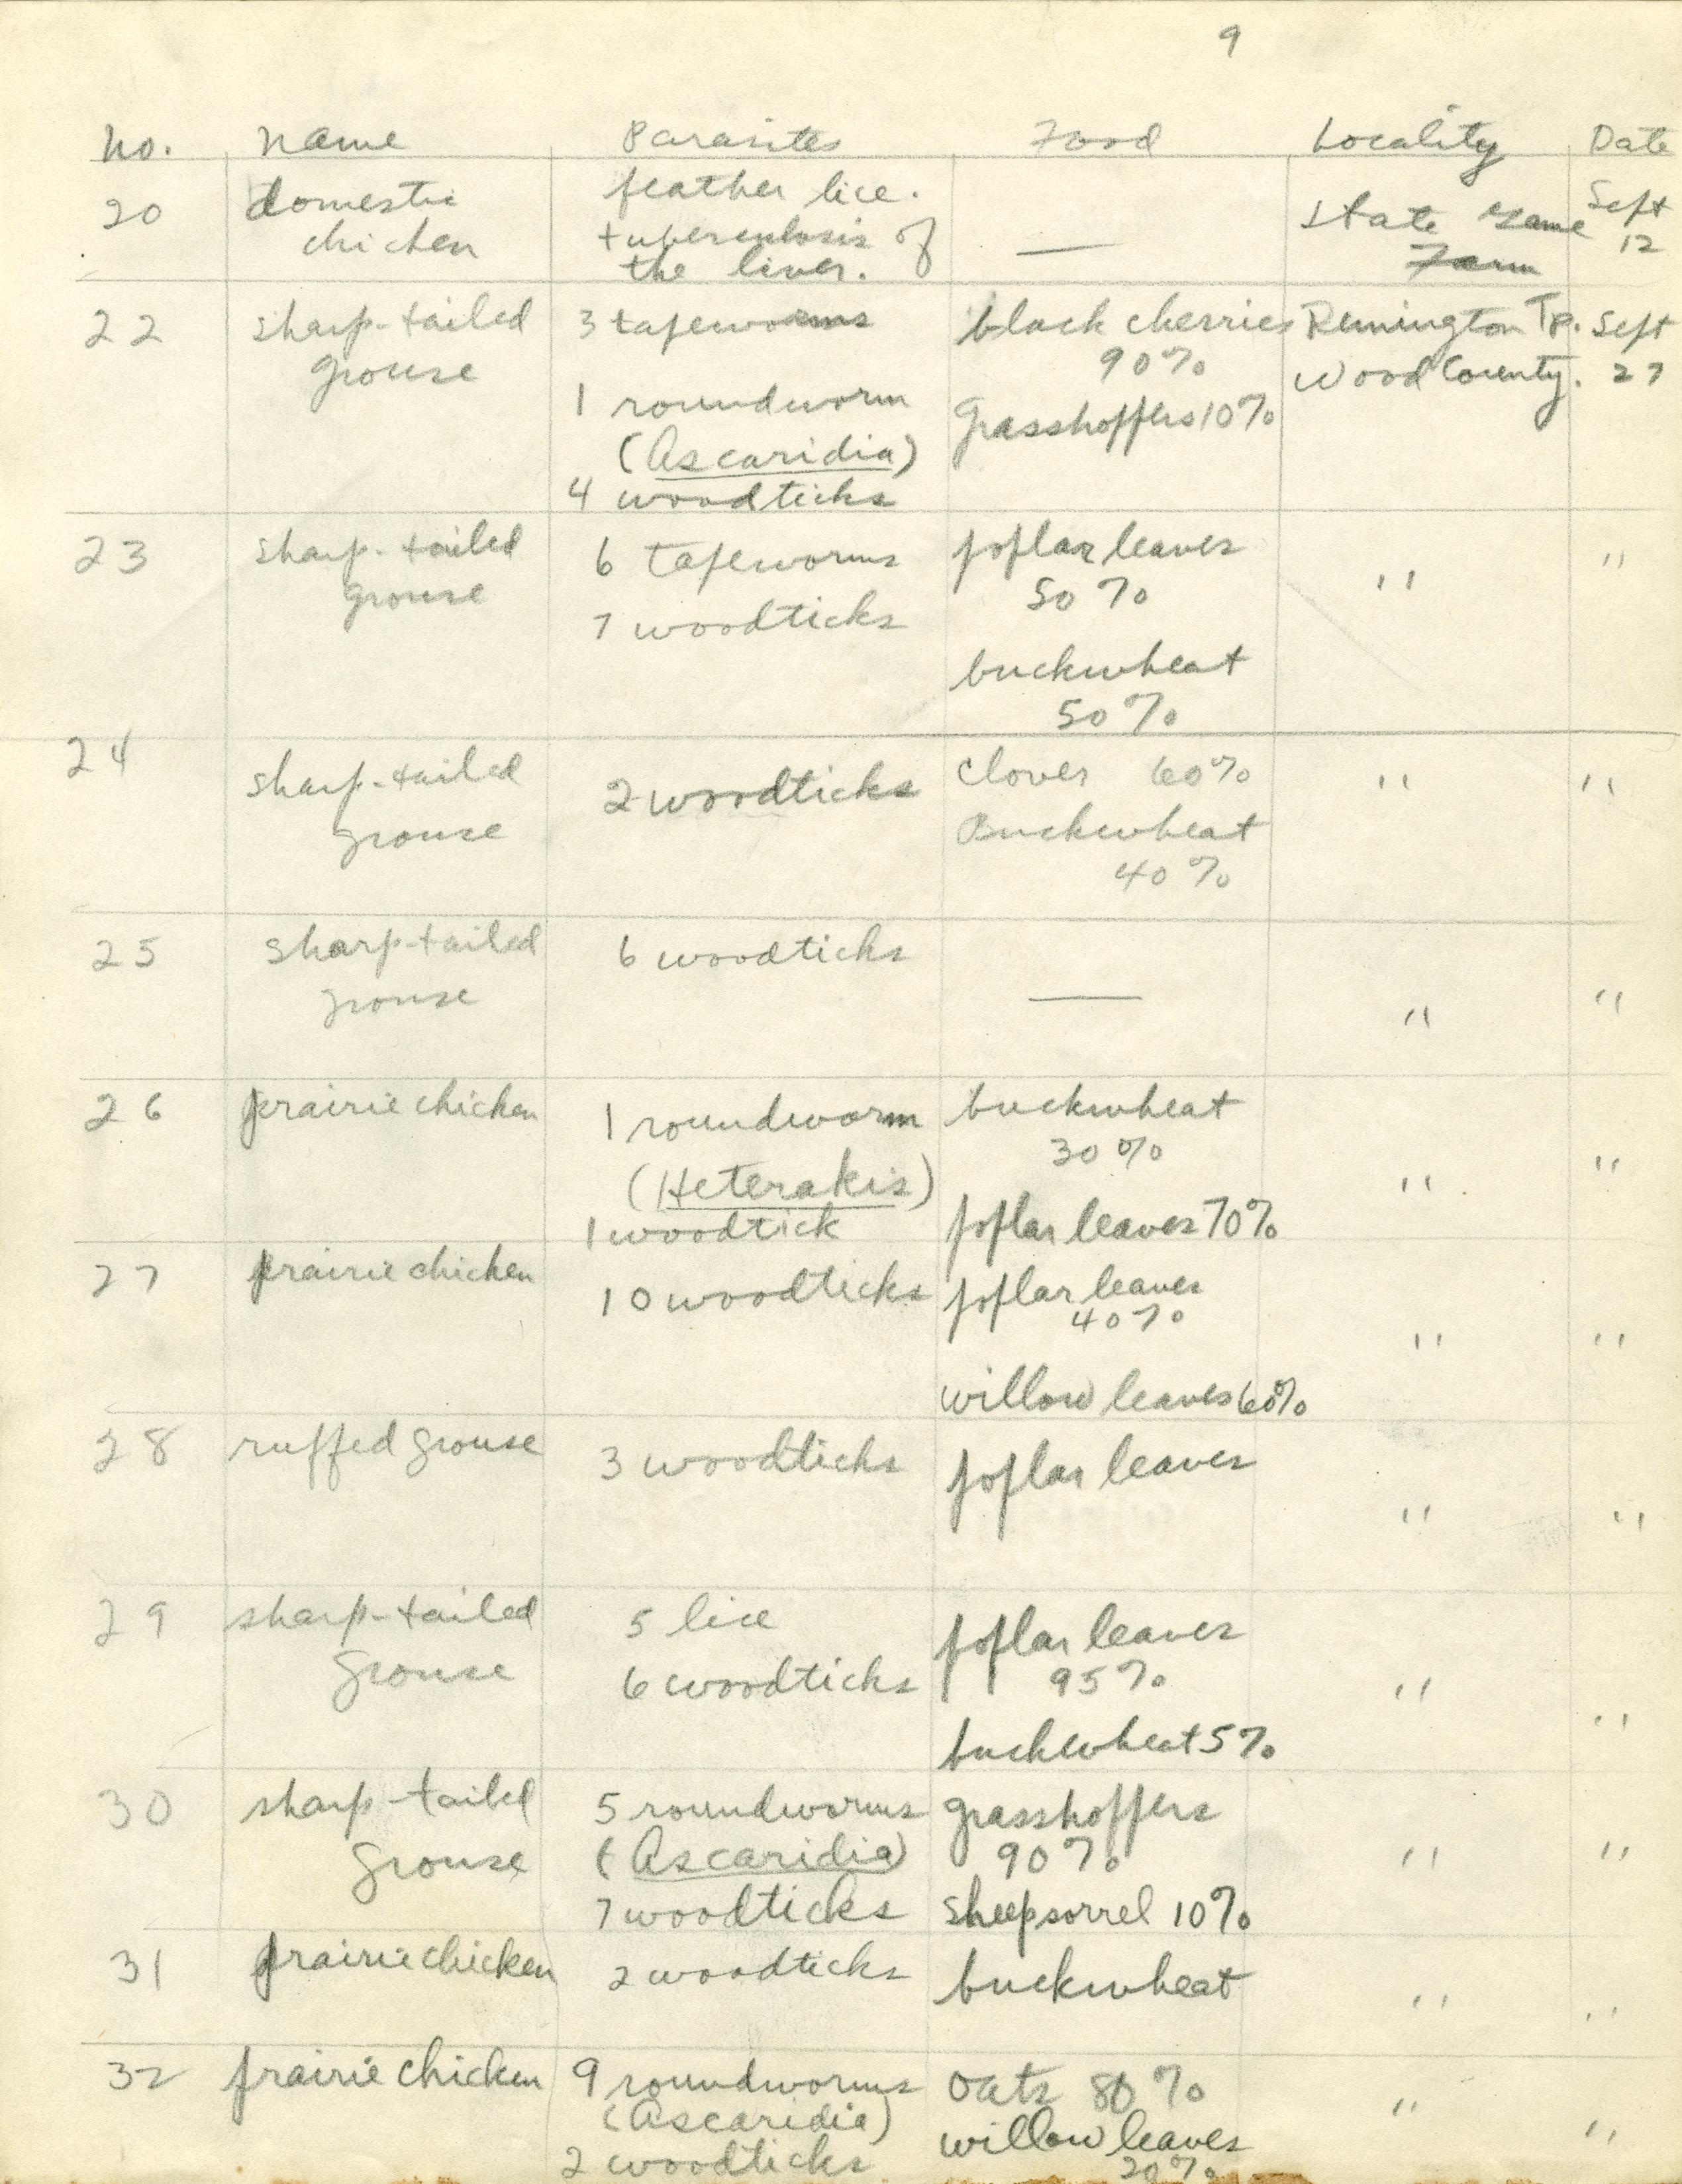 9
No. Name Parasites Food Locality Date
20 domestic chicken feather lice. tuberculosis of the liver. — State Game Farm Sept 12
22 sharp-tailed grouse 3 tapeworms black cherries 90% Remington Tp. Sept 27
1 roundworm (Ascaridia) grasshoppers 10% Wood County.
4 woodticks
23 sharp-tailed grouse 6 tapeworms poplar leaves 50% " "
7 woodticks buckwheat 50%
24 sharp-tailed grouse 2 woodticks Clover 60% " "
Buckwheat 40%
25 sharp-tailed grouse 6 woodticks — " "
26 prairie chicken 1 roundworm (Heterakis) buckwheat 30% " "
1 woodtick poplar leaves 70%
27 prairie chicken 10 woodticks poplar leaves 40% " "
willow leaves 60%
28 ruffed grouse 3 woodticks poplar leaves " "
29 sharp-tailed grouse 5 lice poplar leaves 95% " "
6 woodticks buckwheat 5%
30 sharp-tailed grouse 5 roundworms (Ascaridia) grasshoppers 90% " "
7 woodticks sheep sorrel 10%
31 prairie chicken 2 woodticks buckwheat " "
32 prairie chicken 9 roundworms (Ascaridia) Oats 80% " "
2 woodticks willow leaves 20%